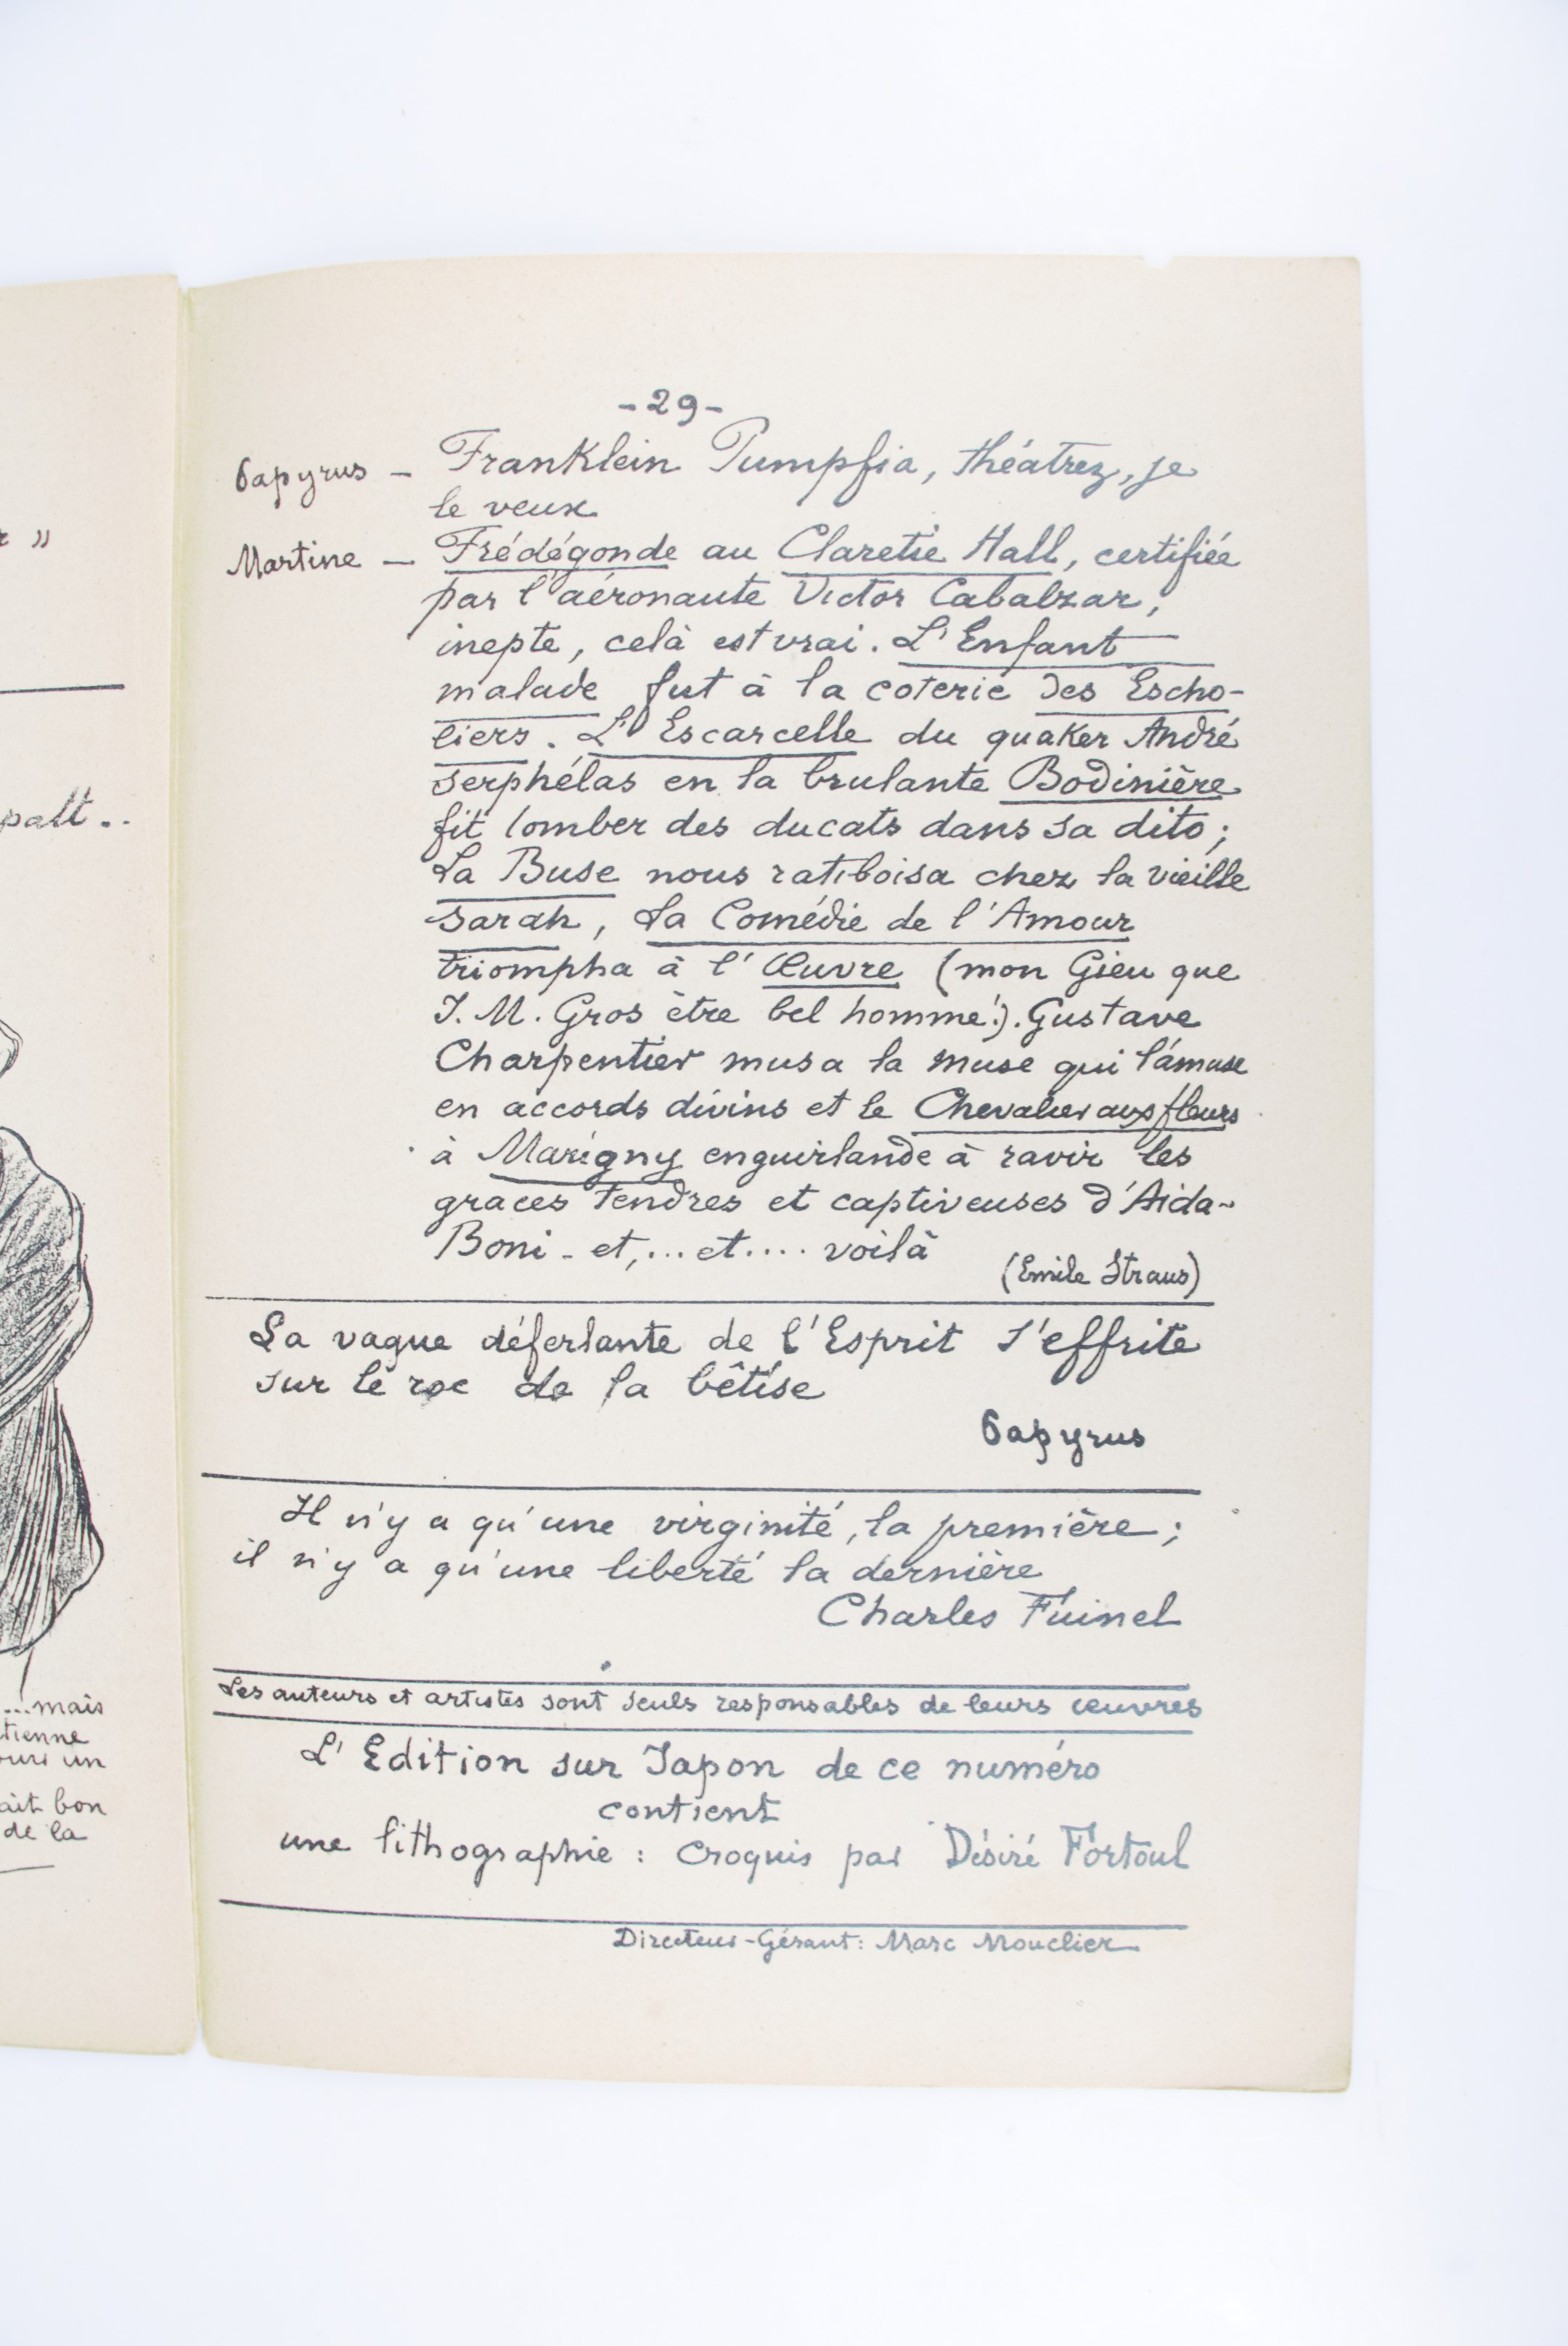 r »
palt..
...mais
tienne
ours un
ait bon
de la
- 29 -
Papyrus — Franklein Pumpfia, théâtrez, je
le veux
Martine — Frédégonde au Claretie Hall, certifiée
par l'aéronaute Victor Cabalzar,
inepte, celà est vrai. L'Enfant
malade fut à la coterie des Escho-
liers. L'Escarcelle du quaker André
Serphélas en la brulante Bodinière
fit tomber des ducats dans sa dito;
La Buse nous ratiboisa chez la vieille
Sarah, La Comédie de l'Amour
triompha à l'Œuvre (mon Gieu que
J. M. Gros être bel homme!). Gustave
Charpentier musa la muse qui l'amuse
en accords divins et le Chevalier aux fleurs
à Marigny enguirlande à ravir les
graces tendres et captiveuses d'Aida-
Boni - et,... et.... voilà
(Emile Straus)
La vague déferlante de l'Esprit s'effrite
sur le roc de la bêtise
Papyrus
Il n'y a qu'une virginité, la première;
il n'y a qu'une liberté la dernière
Charles Fuinel
Les auteurs et artistes sont seuls responsables de leurs œuvres
L'Edition sur Japon de ce numéro
contient
une lithographie : Croquis par Désiré Fortoul
Directeur-Gérant: Marc Mouclier